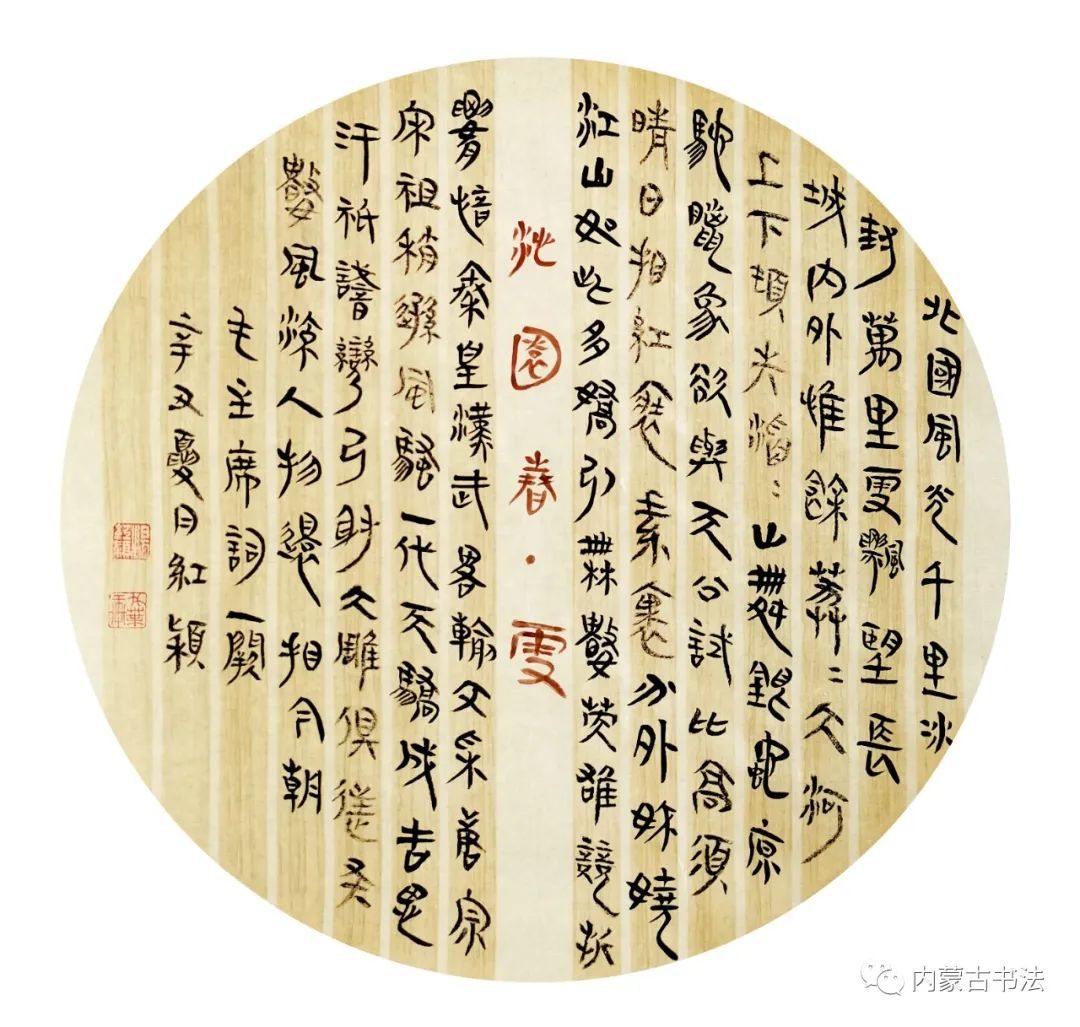 北國風光千里冰
封萬里雪飄望長
城内外惟餘莽〻大河
上下頓失滔〻山舞銀蛇原
馳臘象欲與天公試比高須
晴日看紅裝素裹分外妖嬈
江山如此多嬌引無數英雄競折
沁園春·雪
腰惜秦皇漢武畧輸文采唐宗
宋祖稍遜風騷一代天驕成吉思
汗祇識彎弓射大雕俱往矣
數風流人物還看今朝
毛主席詞一闋
辛丑夏月紅穎
内蒙古书法